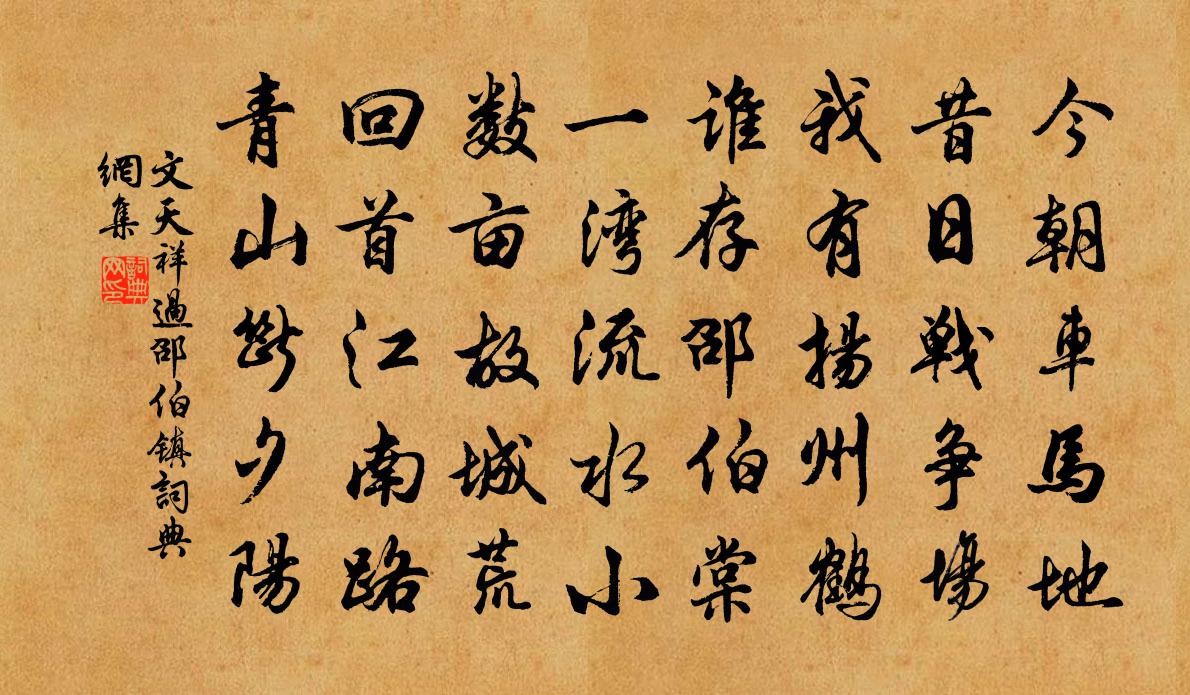 今朝車馬地
昔日戦争場
我有揚州鶴
谁存邵伯棠
一湾流水小
数亩故城荒
回首江南路
青山斷夕陽
文天祥過邵伯鎮詞典
網集
詞典网印